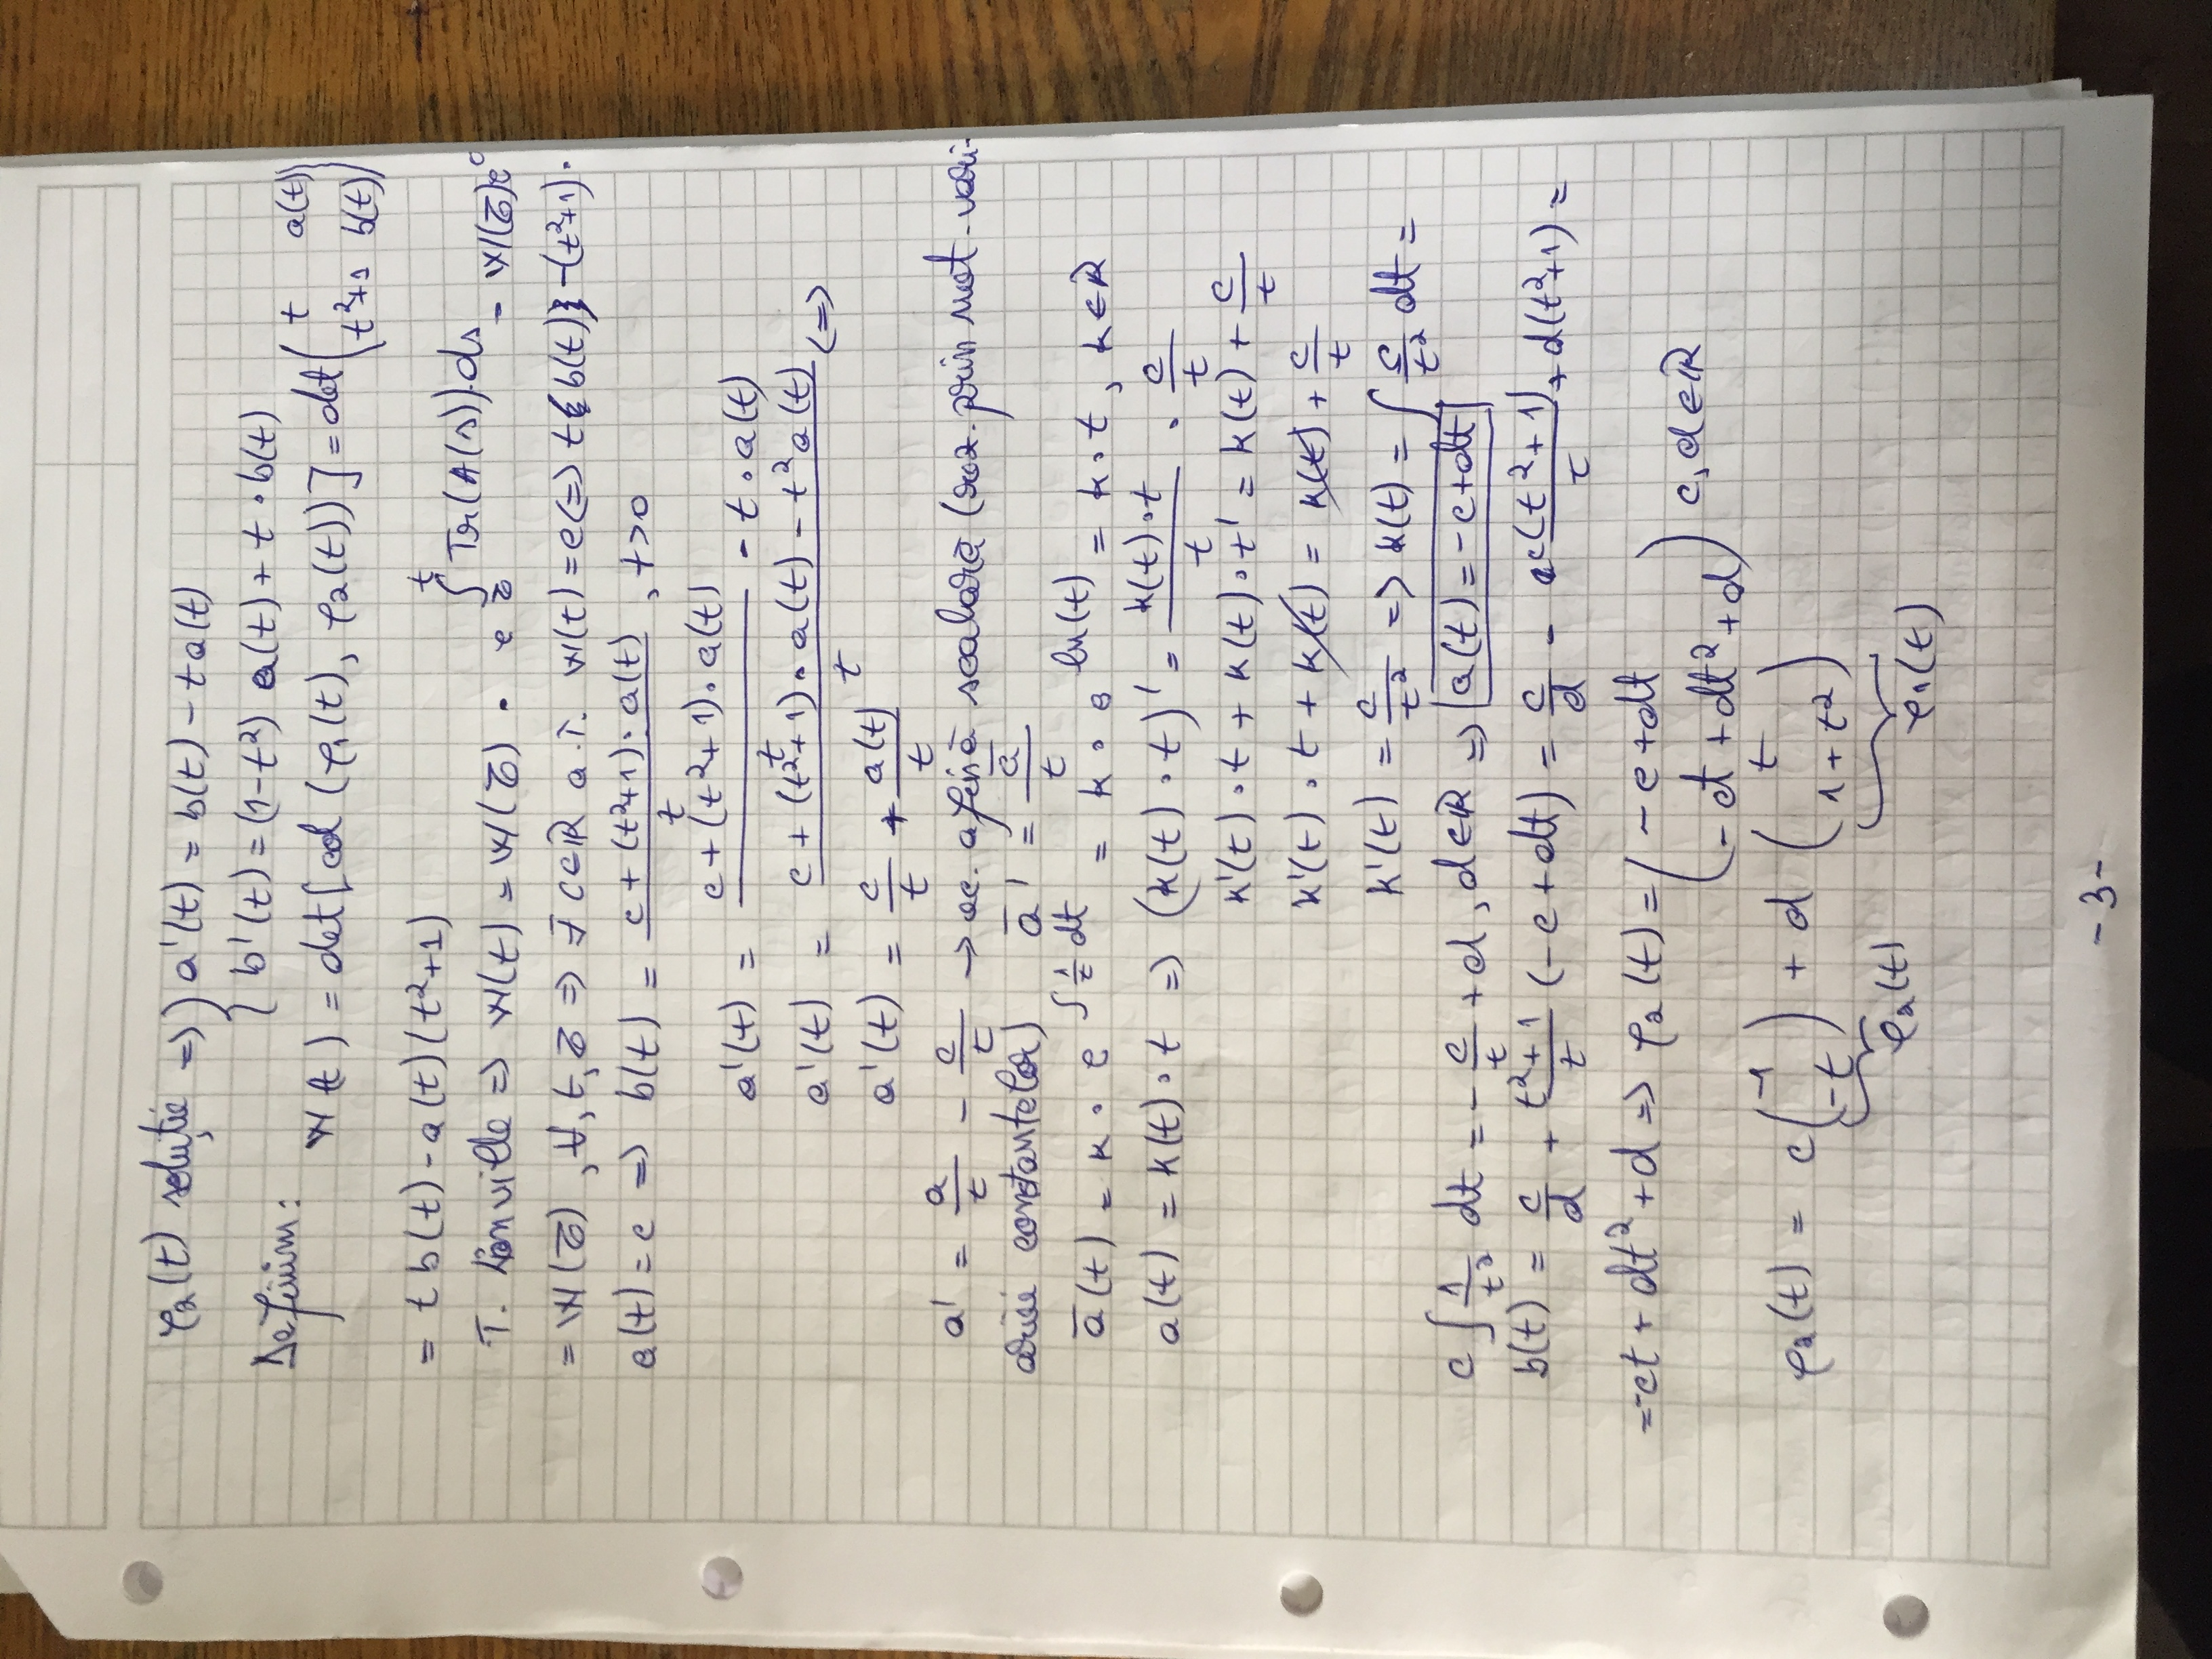 φ₂(t) soluție => { a'(t) = b(t) - t a(t)
b'(t) = (1-t²) a(t) + t · b(t)
Definim:
W(t) = det[col (φ₁(t), φ₂(t))] = det ( t a(t) / t²+1 b(t) )
= t b(t) - a(t)(t²+1)
T. Lionville => W(t) = W(τ) · e ∫_τ^t Tr(A(s))·ds - W(τ)e⁰
= W(τ), ∀, t, τ => ∃ c∈ℝ a.î. W(t) = c <=> t{b(t)} - (t²+1)·
a(t) = c => b(t) = (c + (t²+1)· a(t))/t , t>0
a'(t) = (c + (t²+1)· a(t))/t - t · a(t)
a'(t) = (c + (t²+1)· a(t) - t² a(t))/t <=>
a'(t) = c/t + a(t)/t
a' = a/t - c/t → ec. afină scalară (rez. prin met-vari-
ației constantelor) ā' = ā/t
ā(t) = k · e^{∫ 1/t dt} = k · e^{ln(t)} = k · t, k∈ℝ
a(t) = k(t) · t => (k(t) · t)' = k(t)·t/t · c/t
k'(t) · t + k(t) · t' = k(t) + c/t
k'(t) · t + k(t) = k(t) + c/t
k'(t) = c/t² => k(t) = ∫ c/t² dt =
c ∫ 1/t² dt = - c/t + d, d∈ℝ => a(t) = -c+dt
b(t) = c/d + (t²+1)/t (-c + dt) = c/d - c(t²+1)/t + d(t²+1) =
= -ct + dt² + d => φ₂(t) = ( -c + dt / -ct + dt² + d ) c, d∈ℝ
φ₂(t) = c ( -1 / -t ) + d ( t / 1 + t² )
φ₂(t) φ₁(t)
- 3 -